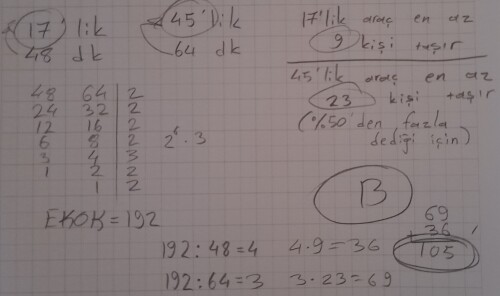 17' lik
48 dk
45' lik
64 dk
17'lik araç en az
9 kişi taşır
45'lik araç en az
23 kişi taşır
(%50'den fazla
dediği için)
48 64 2
24 32 2
12 16 2
6 8 2
3 4 3
1 2 2
1 2
2⁶ · 3
B
EKOK = 192
192 : 48 = 4 4 · 9 = 36
192 : 64 = 3 3 · 23 = 69
69
+ 36
105